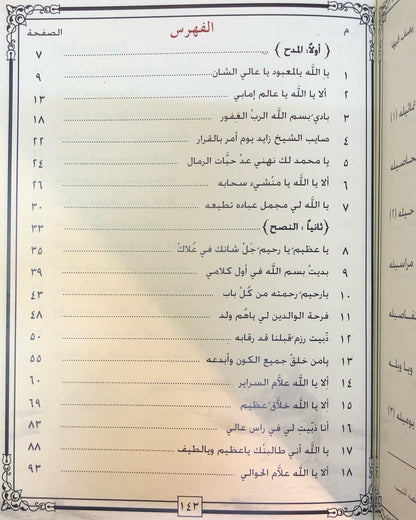 الفهرس
م الصفحة
﴿ أولاً: المدح ﴾ ٧
١ يا اللَّه يالمعبود يا عالي الشان ٩
٢ ألا يا اللَّه يا عالم إمابي ١٣
٣ بادي بسم اللَّه الربْ الغفور ١٨
٤ صايب الشيخ زايد يوم أمر بالقرار ٢٢
٥ يا محمد لك نهني عدْ حبَّات الرمال ٢٤
٦ ألا يا اللَّه يا منْشيء سحابه ٢٦
٧ يا اللَّه لي مجمل عباده تطيعه ٣٠
﴿ ثانياً : النصح ﴾ ٣٣
٨ يا عظيم يا رحيم جَلْ شانك في عُلاكْ ٣٥
٩ بديتْ بسم اللَّه في أول كلامي ٣٩
١٠ يارحيم رحمته من كُلْ باب ٤٣
١١ فرحة الوالدين لي ياهُم ولد ٤٨
١٢ ذبيت رزم قبلنا قد رقابه ٥٠
١٣ يامن خلقْ جميع الكون وأبدعه ٥٥
١٤ ألا يا اللَّه علاَّم السراير ٦٠
١٥ ألا يا اللَّه خلاَّق عظيم ٦٩
١٦ أنا ذبّيت لي في راس عالي ٨٣
١٧ يا اللَّه أني طالبنْك ياعظيم ويالطيف ٨٨
١٨ ألا يا اللَّه علاَّم الحوالي ٩٣
١٤٣
(١)
حيله (٢)
مراسيله
يوميله (٣)